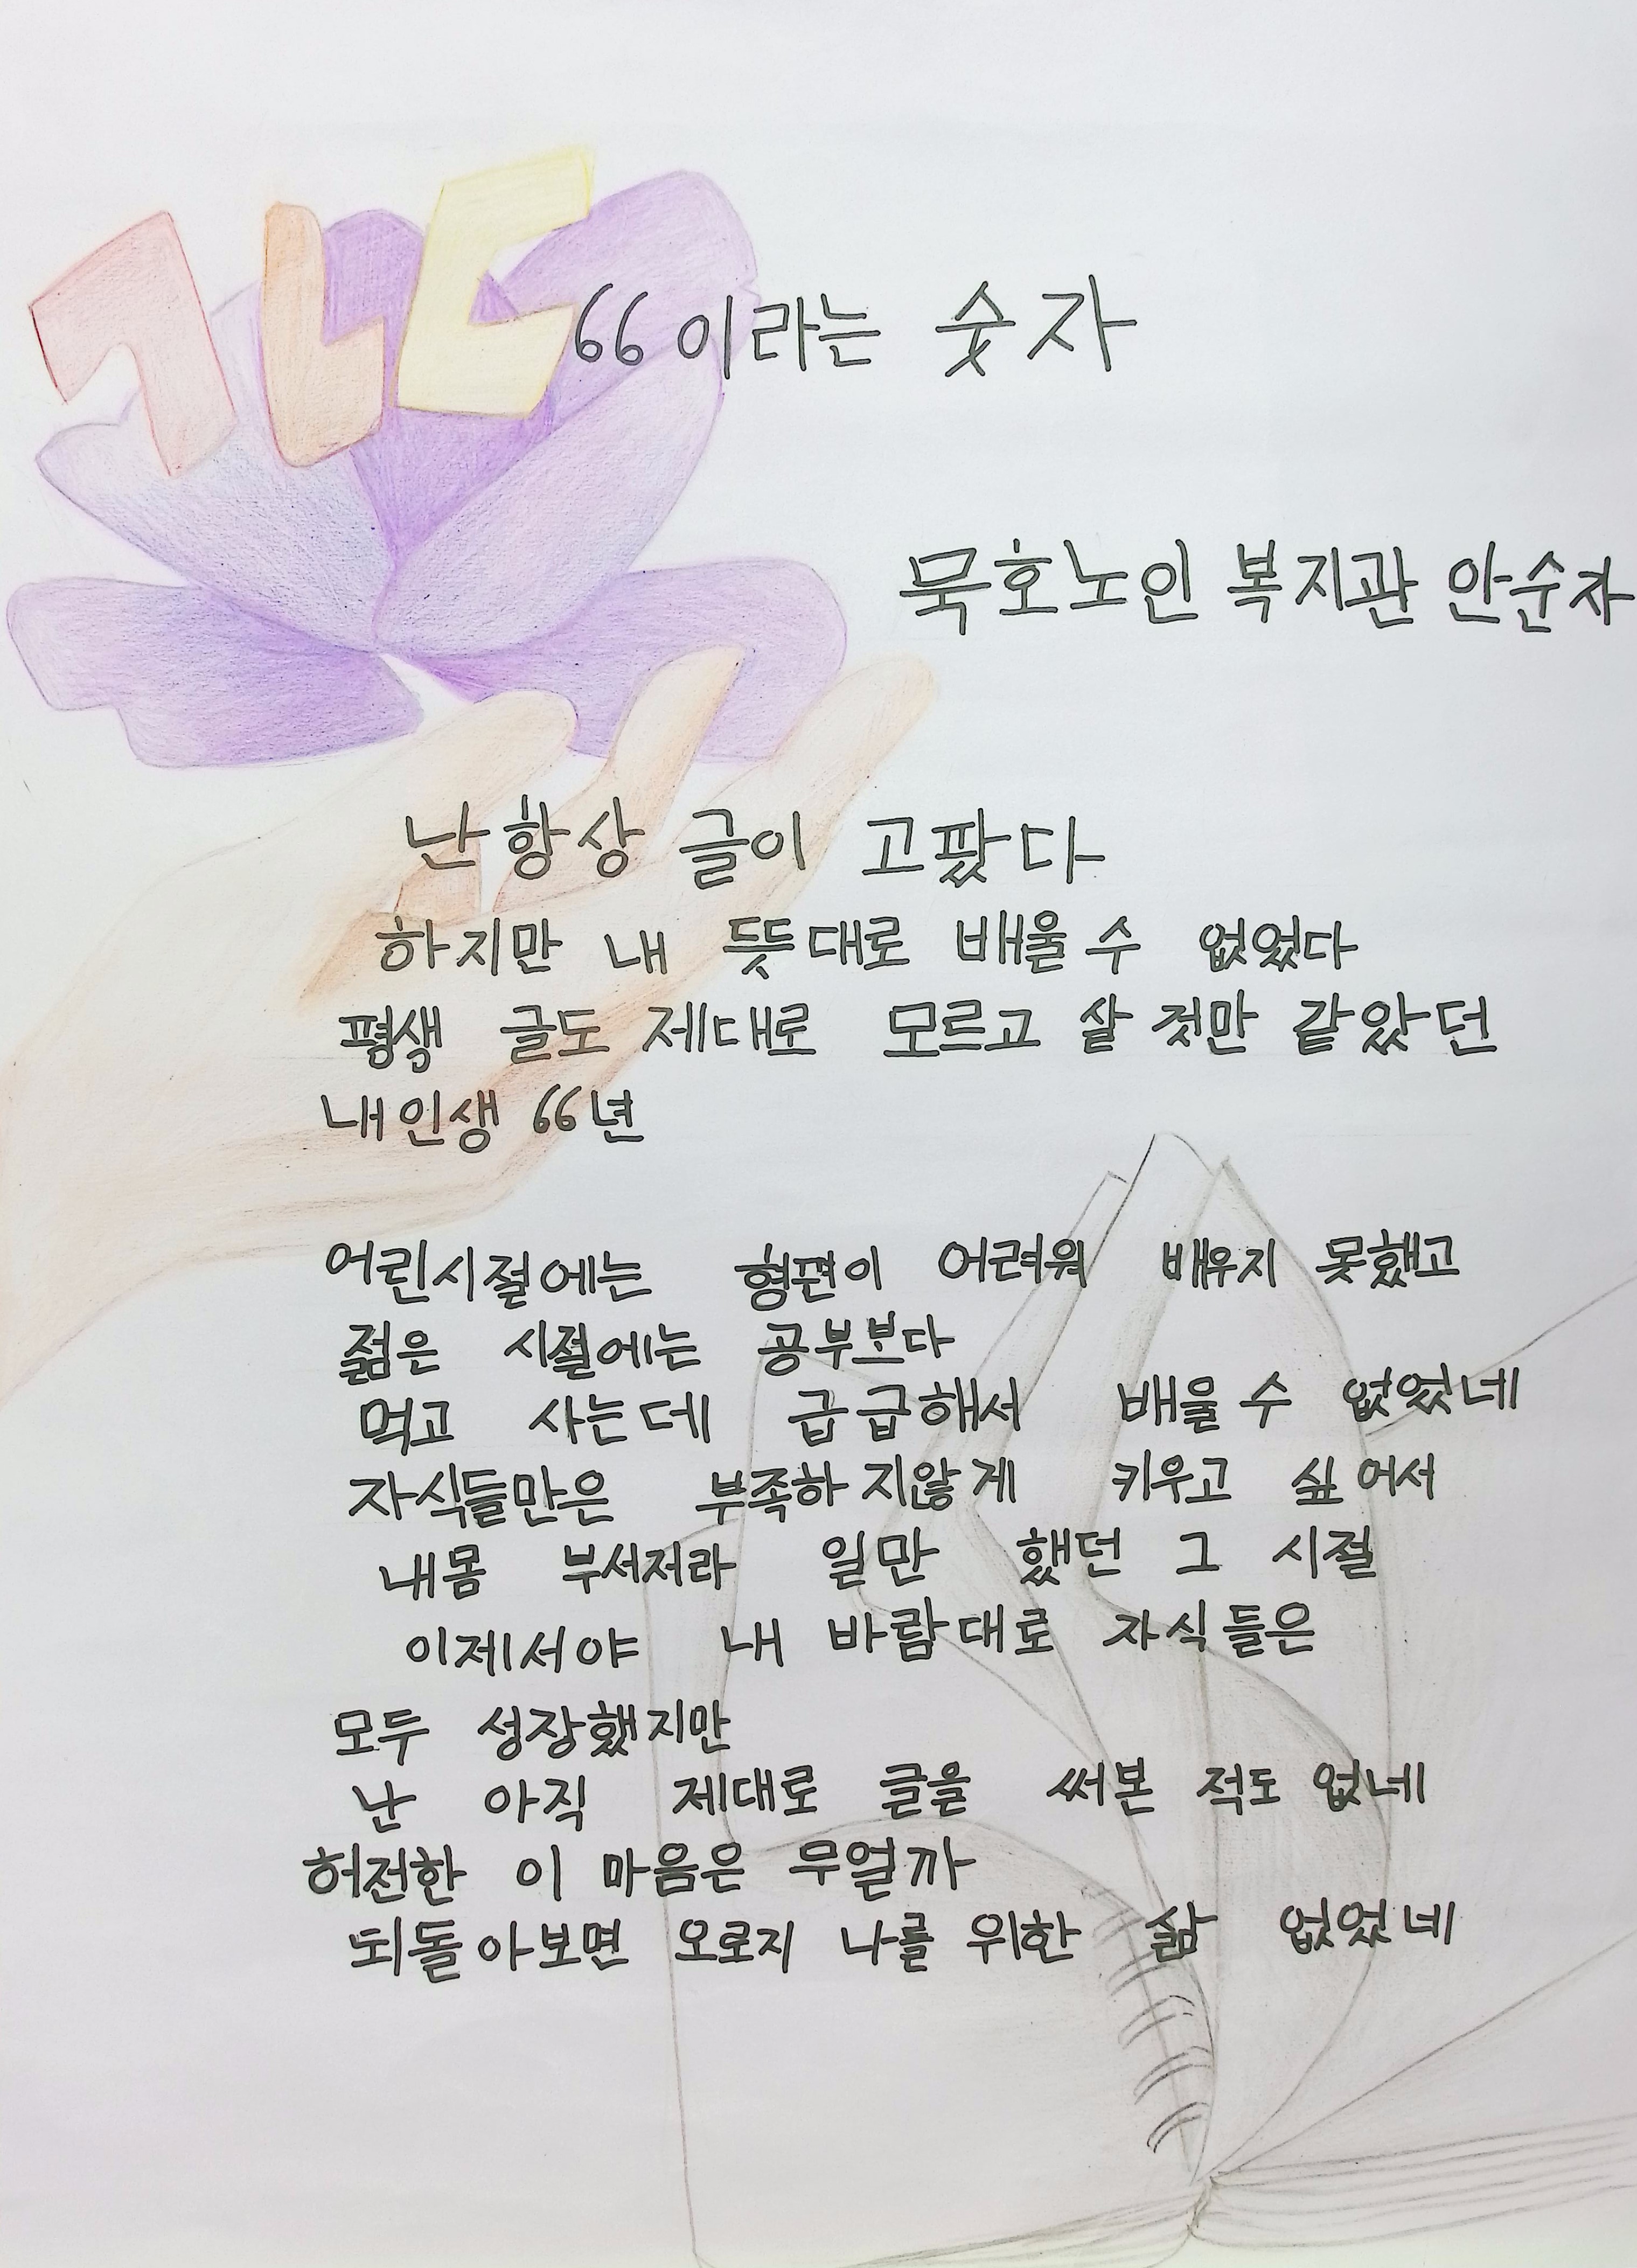 ㄱㄴㄷ
66이라는 숫자
묵호노인 복지관 안순자
난 항상 글이 고팠다
하지만 내 뜻대로 배울 수 없었다
평생 글도 제대로 모르고 살 것만 같았던
내 인생 66년
어린시절에는 형편이 어려워 배우지 못했고
젊은 시절에는 공부보다
먹고 사는데 급급해서 배울 수 없었네
자식들만은 부족하지않게 키우고 싶어서
내몸 부서져라 일만 했던 그 시절
이제서야 내 바람대로 자식들은
모두 성장했지만
난 아직 제대로 글을 써본 적도 없네
허전한 이 마음은 무얼까
되돌아보면 오로지 나를 위한 삶 없었네